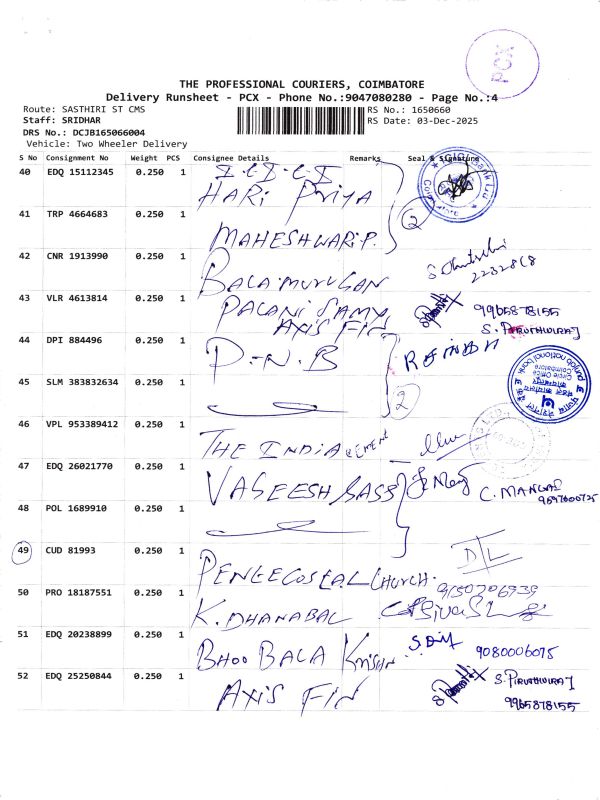 PCX
THE PROFESSIONAL COURIERS, COIMBATORE
Delivery Runsheet - PCX - Phone No.:9047080280 - Page No.:4
Route: SASTHIRI ST CMS
RS No.: 1650660
Staff: SRIDHAR
RS Date: 03-Dec-2025
DRS No.: DCJB165066004
Vehicle: Two Wheeler Delivery
S No Consignment No Weight PCS Consignee Details Remarks Seal & Signature
40 EDQ 15112345 0.250 1
HARI PRIYA
2
41 TRP 4664683 0.250 1
MAHESHWARI.P.
42 CNR 1913990 0.250 1
BALAMURUGAN
43 VLR 4613814 0.250 1 PALANI SAMY
9965878155
AXIS FIN
S. PIRUTHVIRAJ
44 DPI 884496 0.250 1
P.N.B
punjab national bank
Circle Office
Coimbatore
45 SLM 383832634 0.250 1
2
46 VPL 953389412 0.250 1
THE INDIA CEMENT
47 EDQ 26021770 0.250 1
VAGEESH SASS
C. MANGAI
48 POL 1689910 0.250 1
49 CUD 81993 0.250 1
D/L
PENTECOSTAL CHURCH.
50 PRO 18187551 0.250 1
K. DHANABAL
51 EDQ 20238899 0.250 1
BHOO BALA Krishn
9080006075
52 EDQ 25250844 0.250 1
AXIS FIN
S. PIRUTHVIRAJ
9965878155